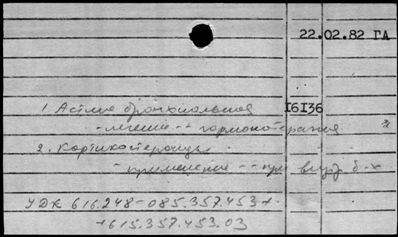 22.02.82 ГА
1. Астма бронхиальная I6I36
- лечение -- гормонотерапия
2. Кортикостероиды
- применение -- при внутр. б-х
УДК 616.248-085.357.453+
+615.357.453.03